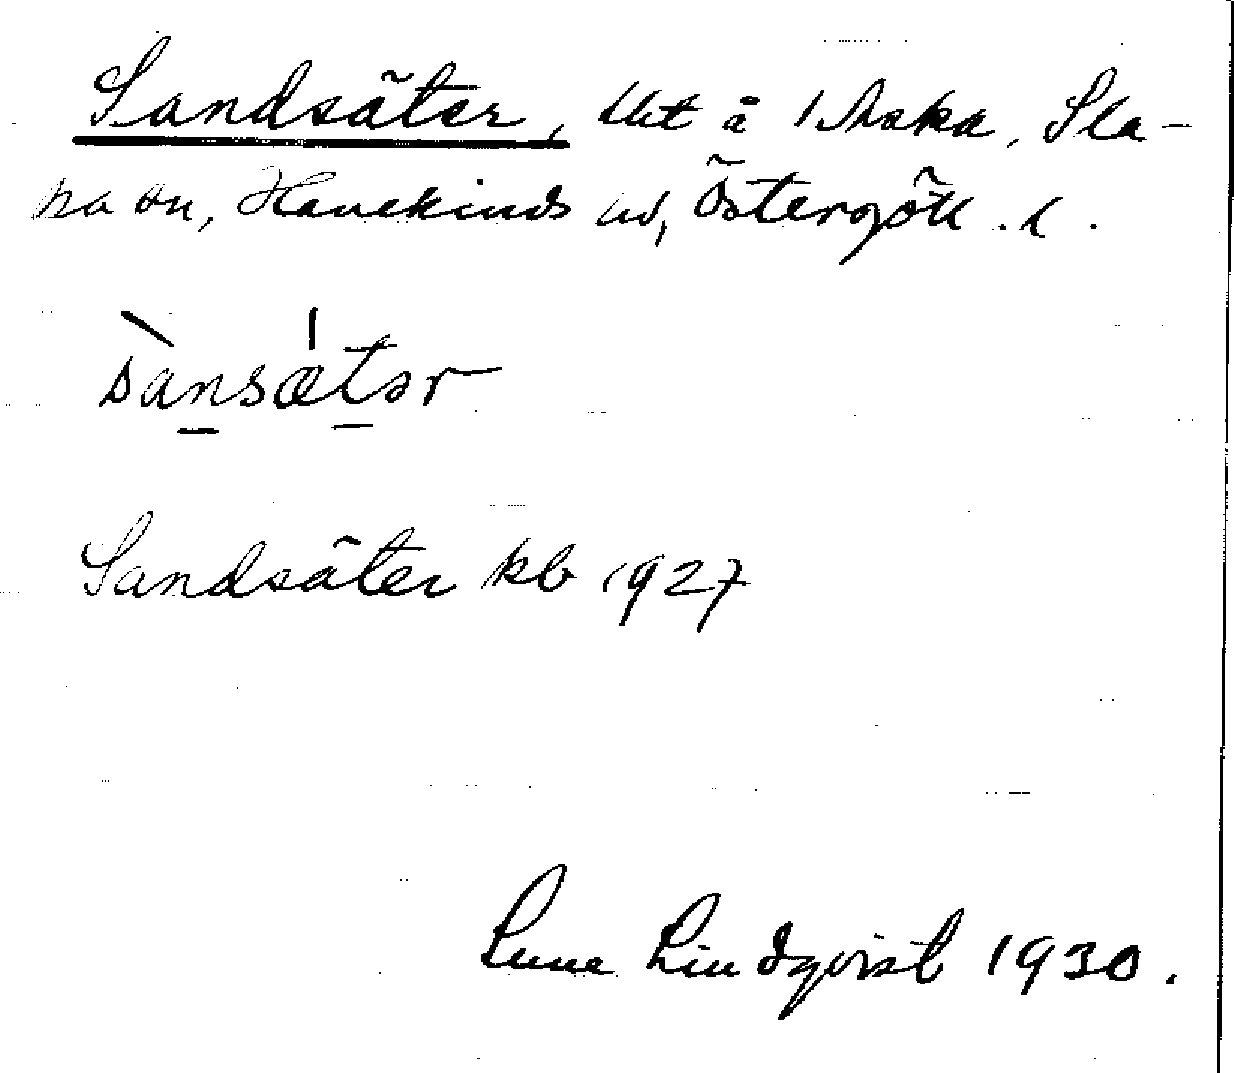 Sandsäter, lht å 1 Aska, Sla-
ka sn, Hanekinds hd, Östergötl. l.
sànsǽtər
Sandsäter kb 1927
Sune Lindqvist 1930.